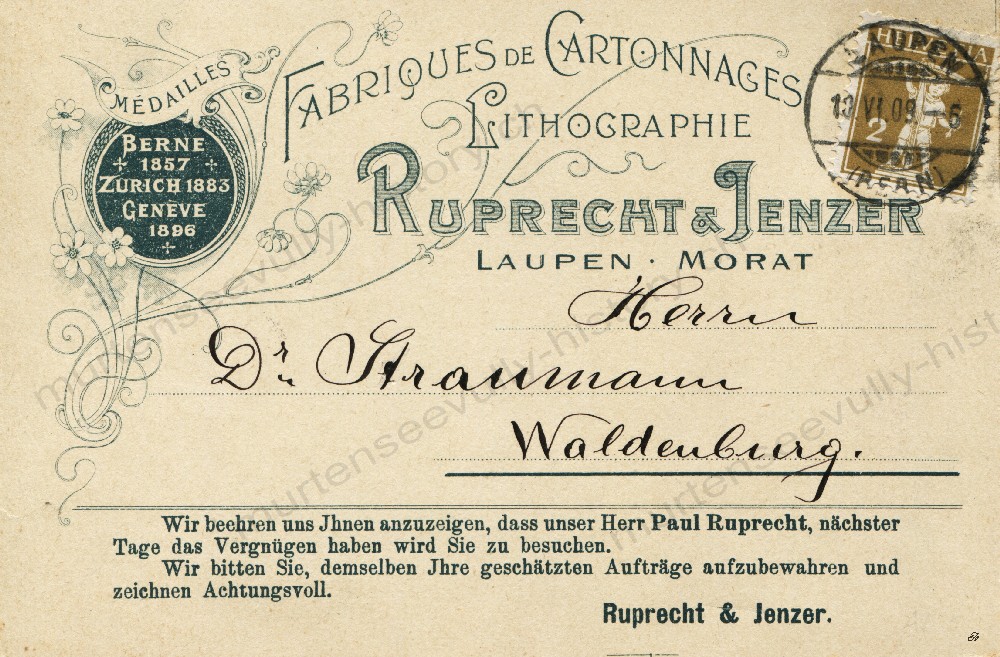 MÉDAILLES
BERNE
1857
ZÜRICH 1883
GENÈVE
1896
FABRIQUES DE CARTONNAGES
LITHOGRAPHIE
RUPRECHT & JENZER
LAUPEN · MORAT
HELVETIA
2
LAUPEN
Herrn
Dr. Straumann
Waldenburg.
Wir beehren uns Jhnen anzuzeigen, dass unser Herr Paul Ruprecht, nächster
Tage das Vergnügen haben wird Sie zu besuchen.
Wir bitten Sie, demselben Jhre geschätzten Aufträge aufzubewahren und
zeichnen Achtungsvoll.
Ruprecht & Jenzer.
murtenseevully-history.ch